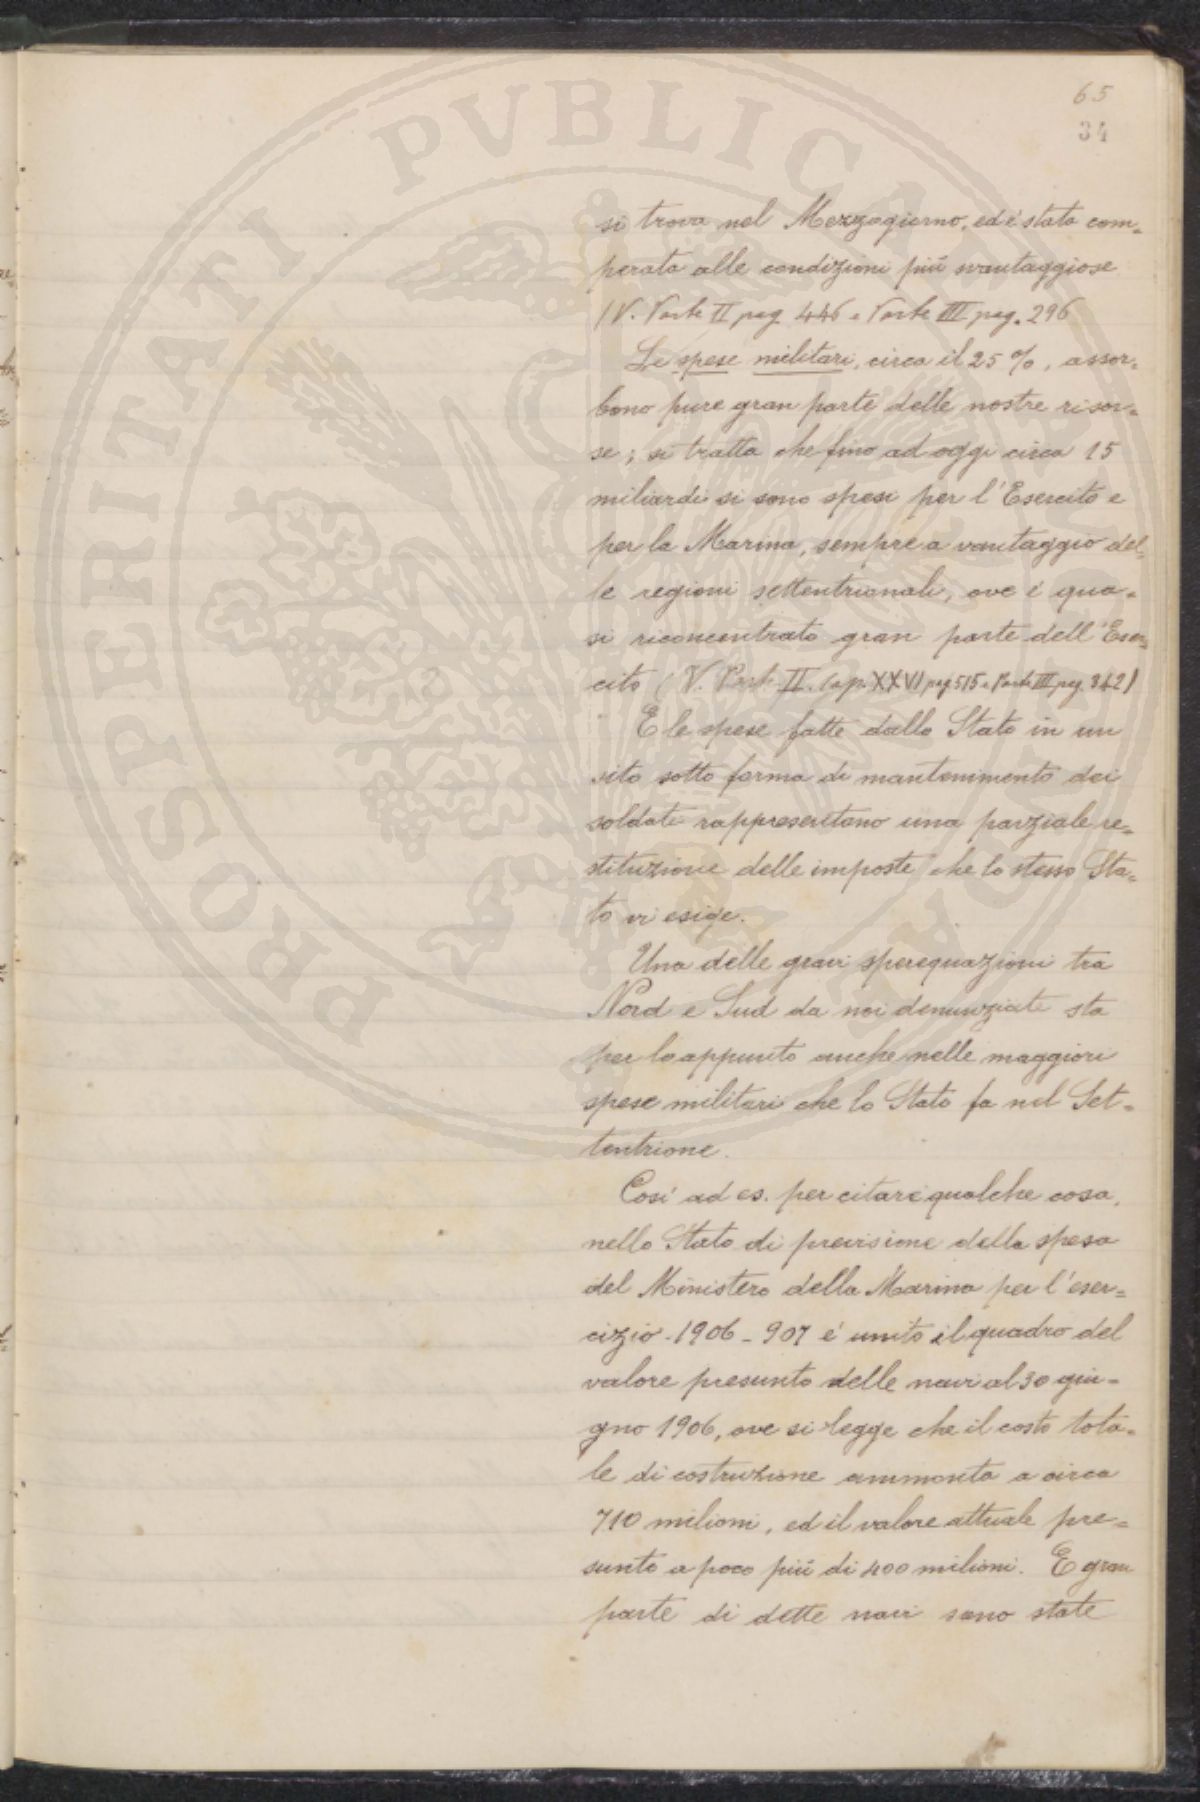 65
34
PROSPERITATI PVBLICAE
si trova nel Mezzogiorno, ed è stata com=
perata alle condizioni più svantaggiose
(V. Parte II pag. 446 e Parte III pag. 296
Le spese militari, circa il 25%, assor=
bono pure gran parte delle nostre risor=
se; si tratta che fino ad oggi circa 15
miliardi si sono spesi per l'Esercito e
per la Marina, sempre a vantaggio del=
le regioni settentrionali, ove è qua=
si riconcentrato gran parte dell'Eser=
cito (V. Parte II. Cap. XXVI pag 515 e Parte III pag. 342)
E le spese fatte dallo Stato in un
sito sotto forma di mantenimento dei
soldati rappresentano una parziale re=
stituzione delle imposte che lo stesso Sta=
to vi esige.
Una delle gravi sperequazioni tra
Nord e Sud da noi denunziate sta
per lo appunto anche nelle maggiori
spese militari che lo Stato fa nel Set=
tentrione.
Così ad es. per citare qualche cosa,
nello Stato di previsione della spesa
del Ministero della Marina per l'eser=
cizio 1906-907 è unito il quadro del
valore presunto delle navi al 30 giu=
gno 1906, ove si legge che il costo tota=
le di costruzione ammonta a circa
710 milioni, ed il valore attuale pre=
sunto a poco più di 400 milioni. E gran
parte di dette navi sono state